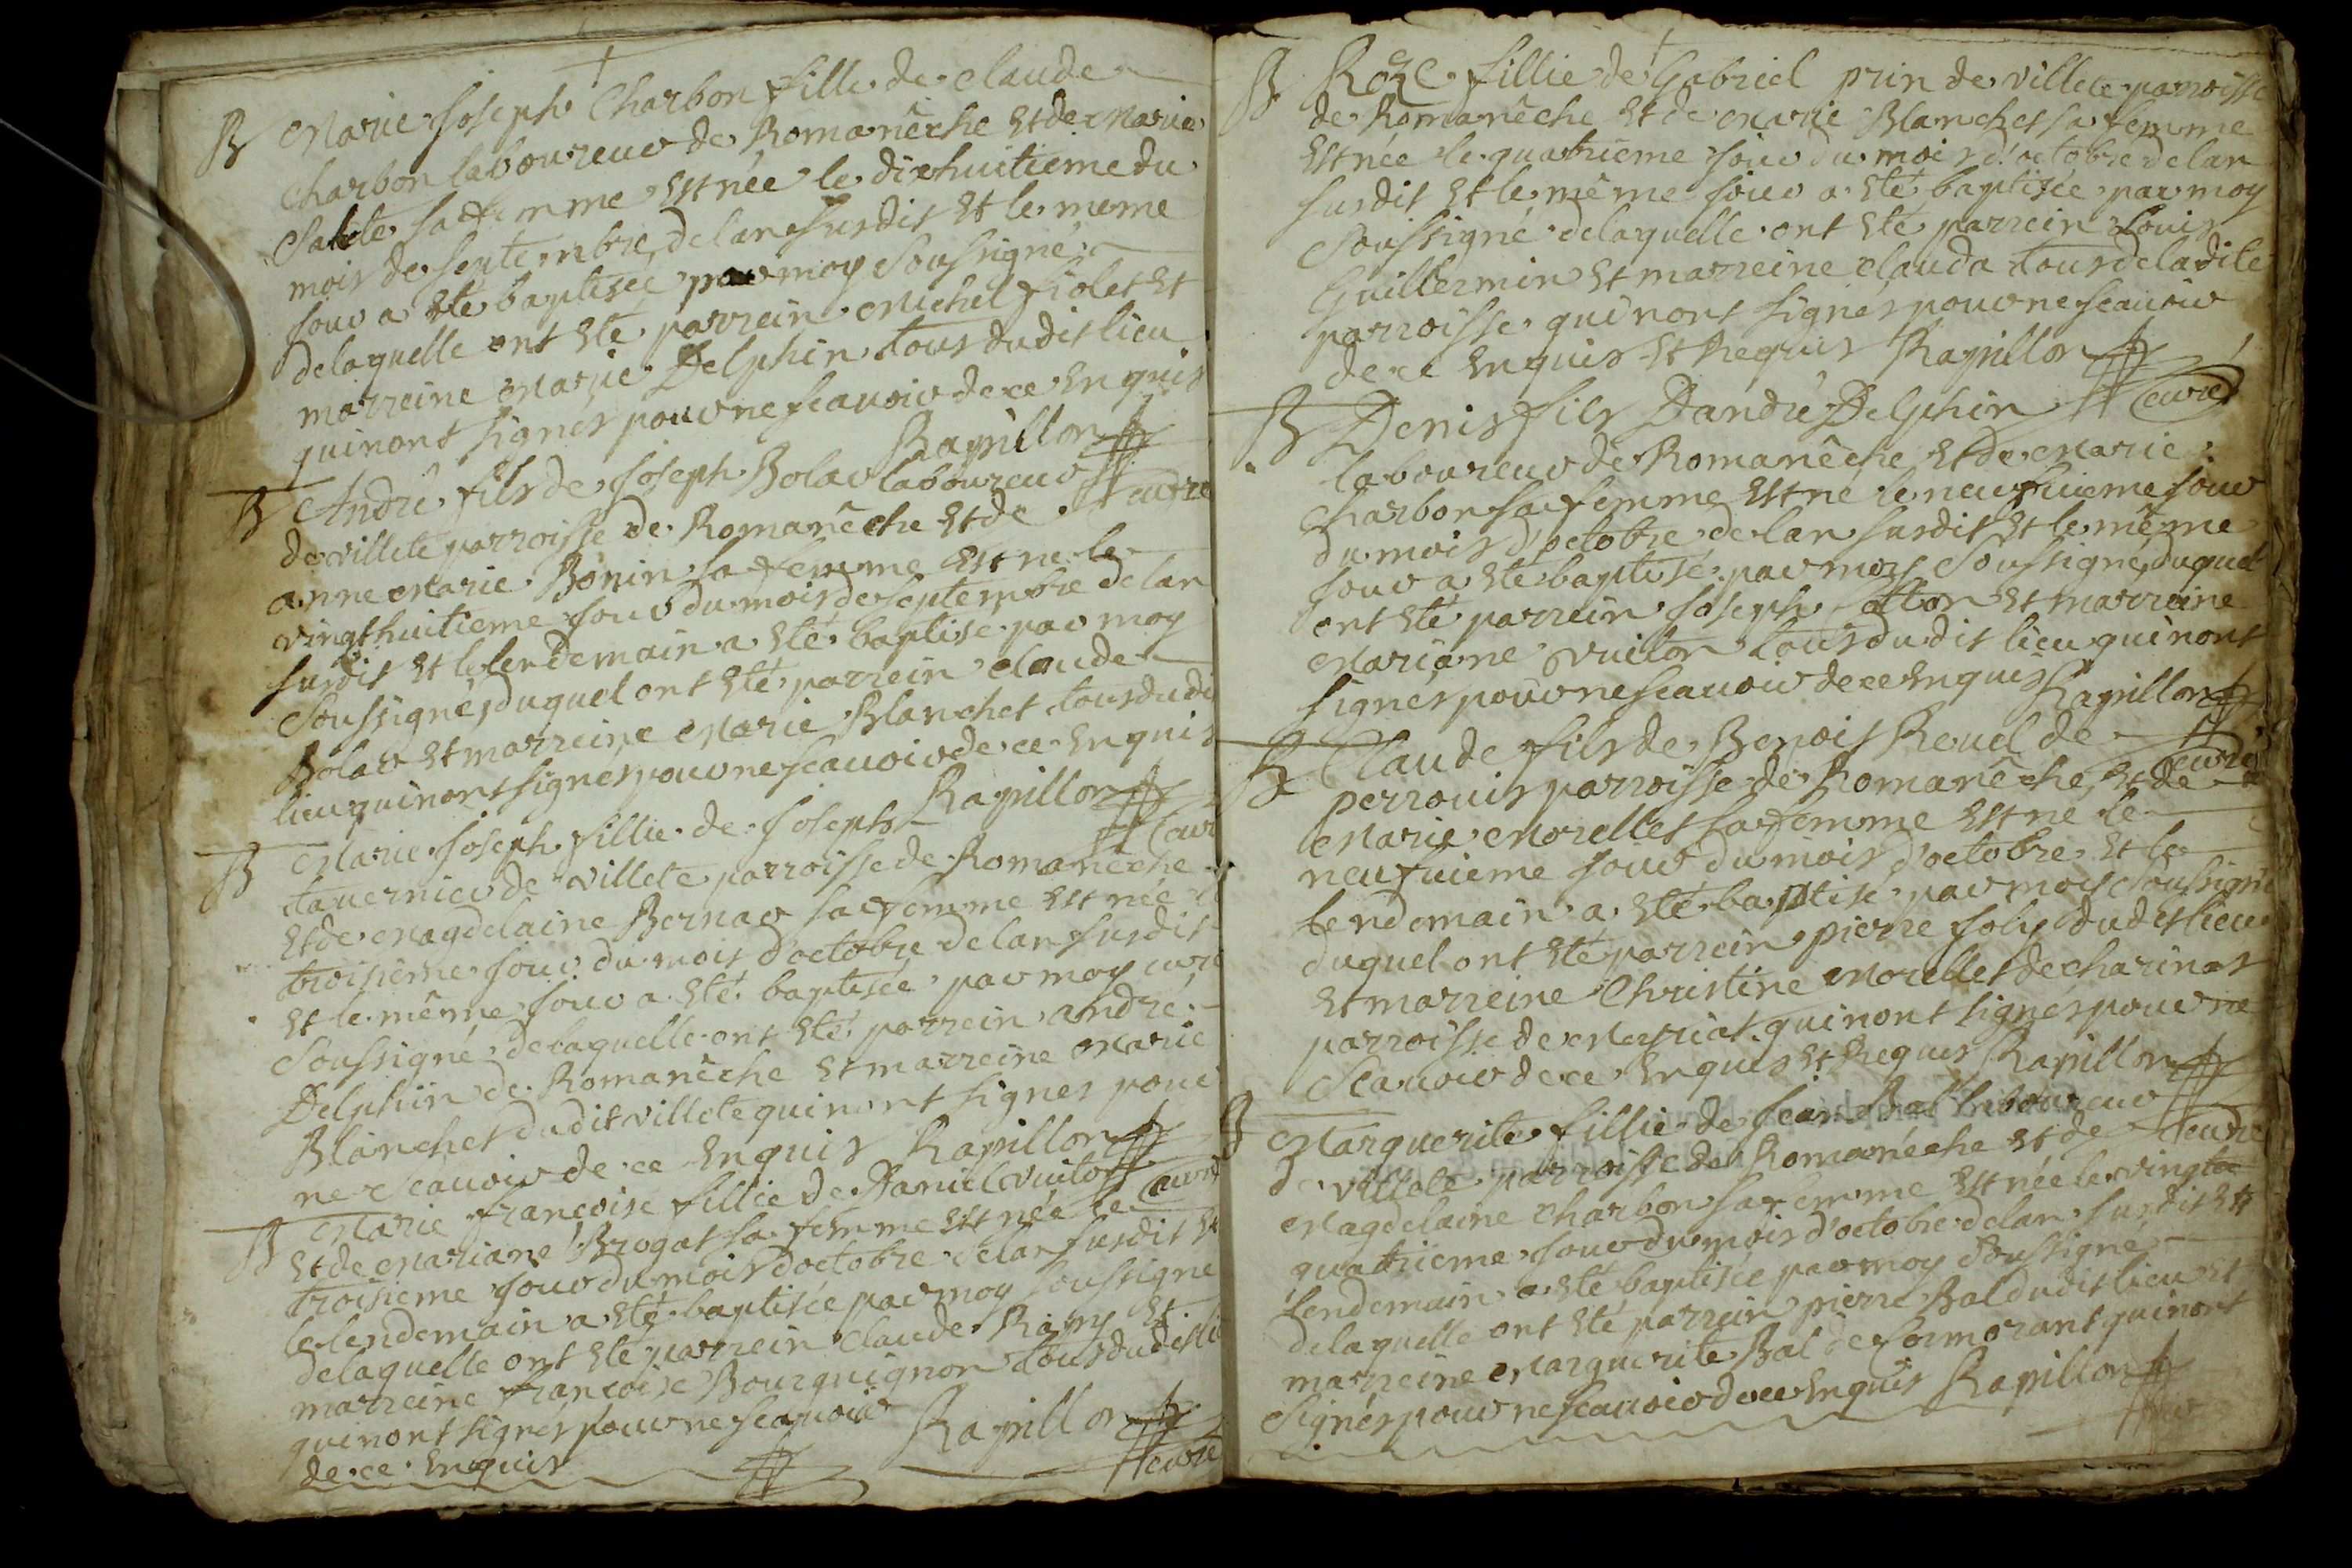 B Marie Joseph Charbon fille de Claude
Charbon laboureur de Romanêche et de Marie
sa femme est née le dixhuitieme du
mois de septembre de lan susdit et le meme
jour a eté baptisée par moy soussigné
delaquelle ont eté parrein Michel fiolet et
marreine Marie Delphin tous dudit lieu
qui nont signés pour ne scavoir de ce enquis
Rapillon
curé
B André fils de Joseph Bolar laboureur
de villete parroisse de Romanêche et de
anne Marie Bonin sa femme est ne le
vingt huitieme jour du mois de septembre de lan
susdit et le lendemain a eté baptisé par moy
soussigné, duquel ont eté parrein Claude
Bolar et marreine Marie Blanchet tous du di
lieu qui nont signés pour ne scavoir de ce enquis
Rapillon
cur
B Marie Joseph fillie de Joseph
tavernier de villete parroisse de Romanêche
et de Magdelaine Bernar sa femme est née
troisieme jour du mois doctobre de lan susdit
et le même jour a eté baptisée par moy curé
soussigné delaquelle ont eté parrein andré
Delphin de Romanêche et marreine Marie
Blanchet dudit villete qui nont signes pour
ne scavoir de ce enquis Rapillon
curé
B Marie francoise fillie de Daniel vuiton
et de Mariane Brogat sa femme est née le
troisieme jour du mois doctobre de lan susdit et
le lendemain a eté baptisée par moy soussigne
delaquelle ont eté parrein Claude Ramy et
marreine francoise Bourguignon tous dudit li
qui nont signés pour ne scavoir
de ce enquis Rapillon
curé
B Roze fillie de Gabriel prin de villete parroisse
de Romanêche et de Marie Blanchet sa femme
est née le quatrieme jour du mois d'octobre de lan
susdit et le même jour a eté baptisée par moy
soussigné delaquelle ont eté parrein Louis
Guillermin et marreine clauda tous de la dite
parroisse qui nont signés pour ne scavoir
de ce enquis et Requis Rapillon
curé
B Denis fils Dandré Delphin
laboureur de Romanêche et de Marie
Charbon sa femme est né le neufuieme jour
du mois d'octobre de lan susdit et le même
jour a eté baptisé par moy soussigné, duquel
ont eté parrein Joseph et marreine
Mariane vuiton tous du dit lieu qui nont
signés pour ne scavoir de ce enquis Rapillon
curé
B Claude fils de Benois Reud de
perrouis parroisse de Romanêche et de
Marie Morellet sa femme est ne le
neufuieme jour du mois d'octobre et le
lendemain a eté baptisé par moy soussigné
duquel ont eté parrein pierre Joly dudit lieu
et marreine Christine Morellet de charinas
parroisse de Meyriat qui nont signés pour ne
scavoir de ce enquis et Requis Rapillon
curé
B Marguerite fillie de Jean Bal laboureur
de villete parroisse de Romanêche et de
Magdelaine Charbon sa femme est née le vingt
quatrieme jour du mois d'octobre de lan susdit et
lendemain a eté baptisée par moy soussigné
delaquelle ont eté parrein pierre Bal dudit lieu et
marreine Marguerite Bal de Cormorant qui nont
signés pour ne scavoir de ce enquis Rapillon